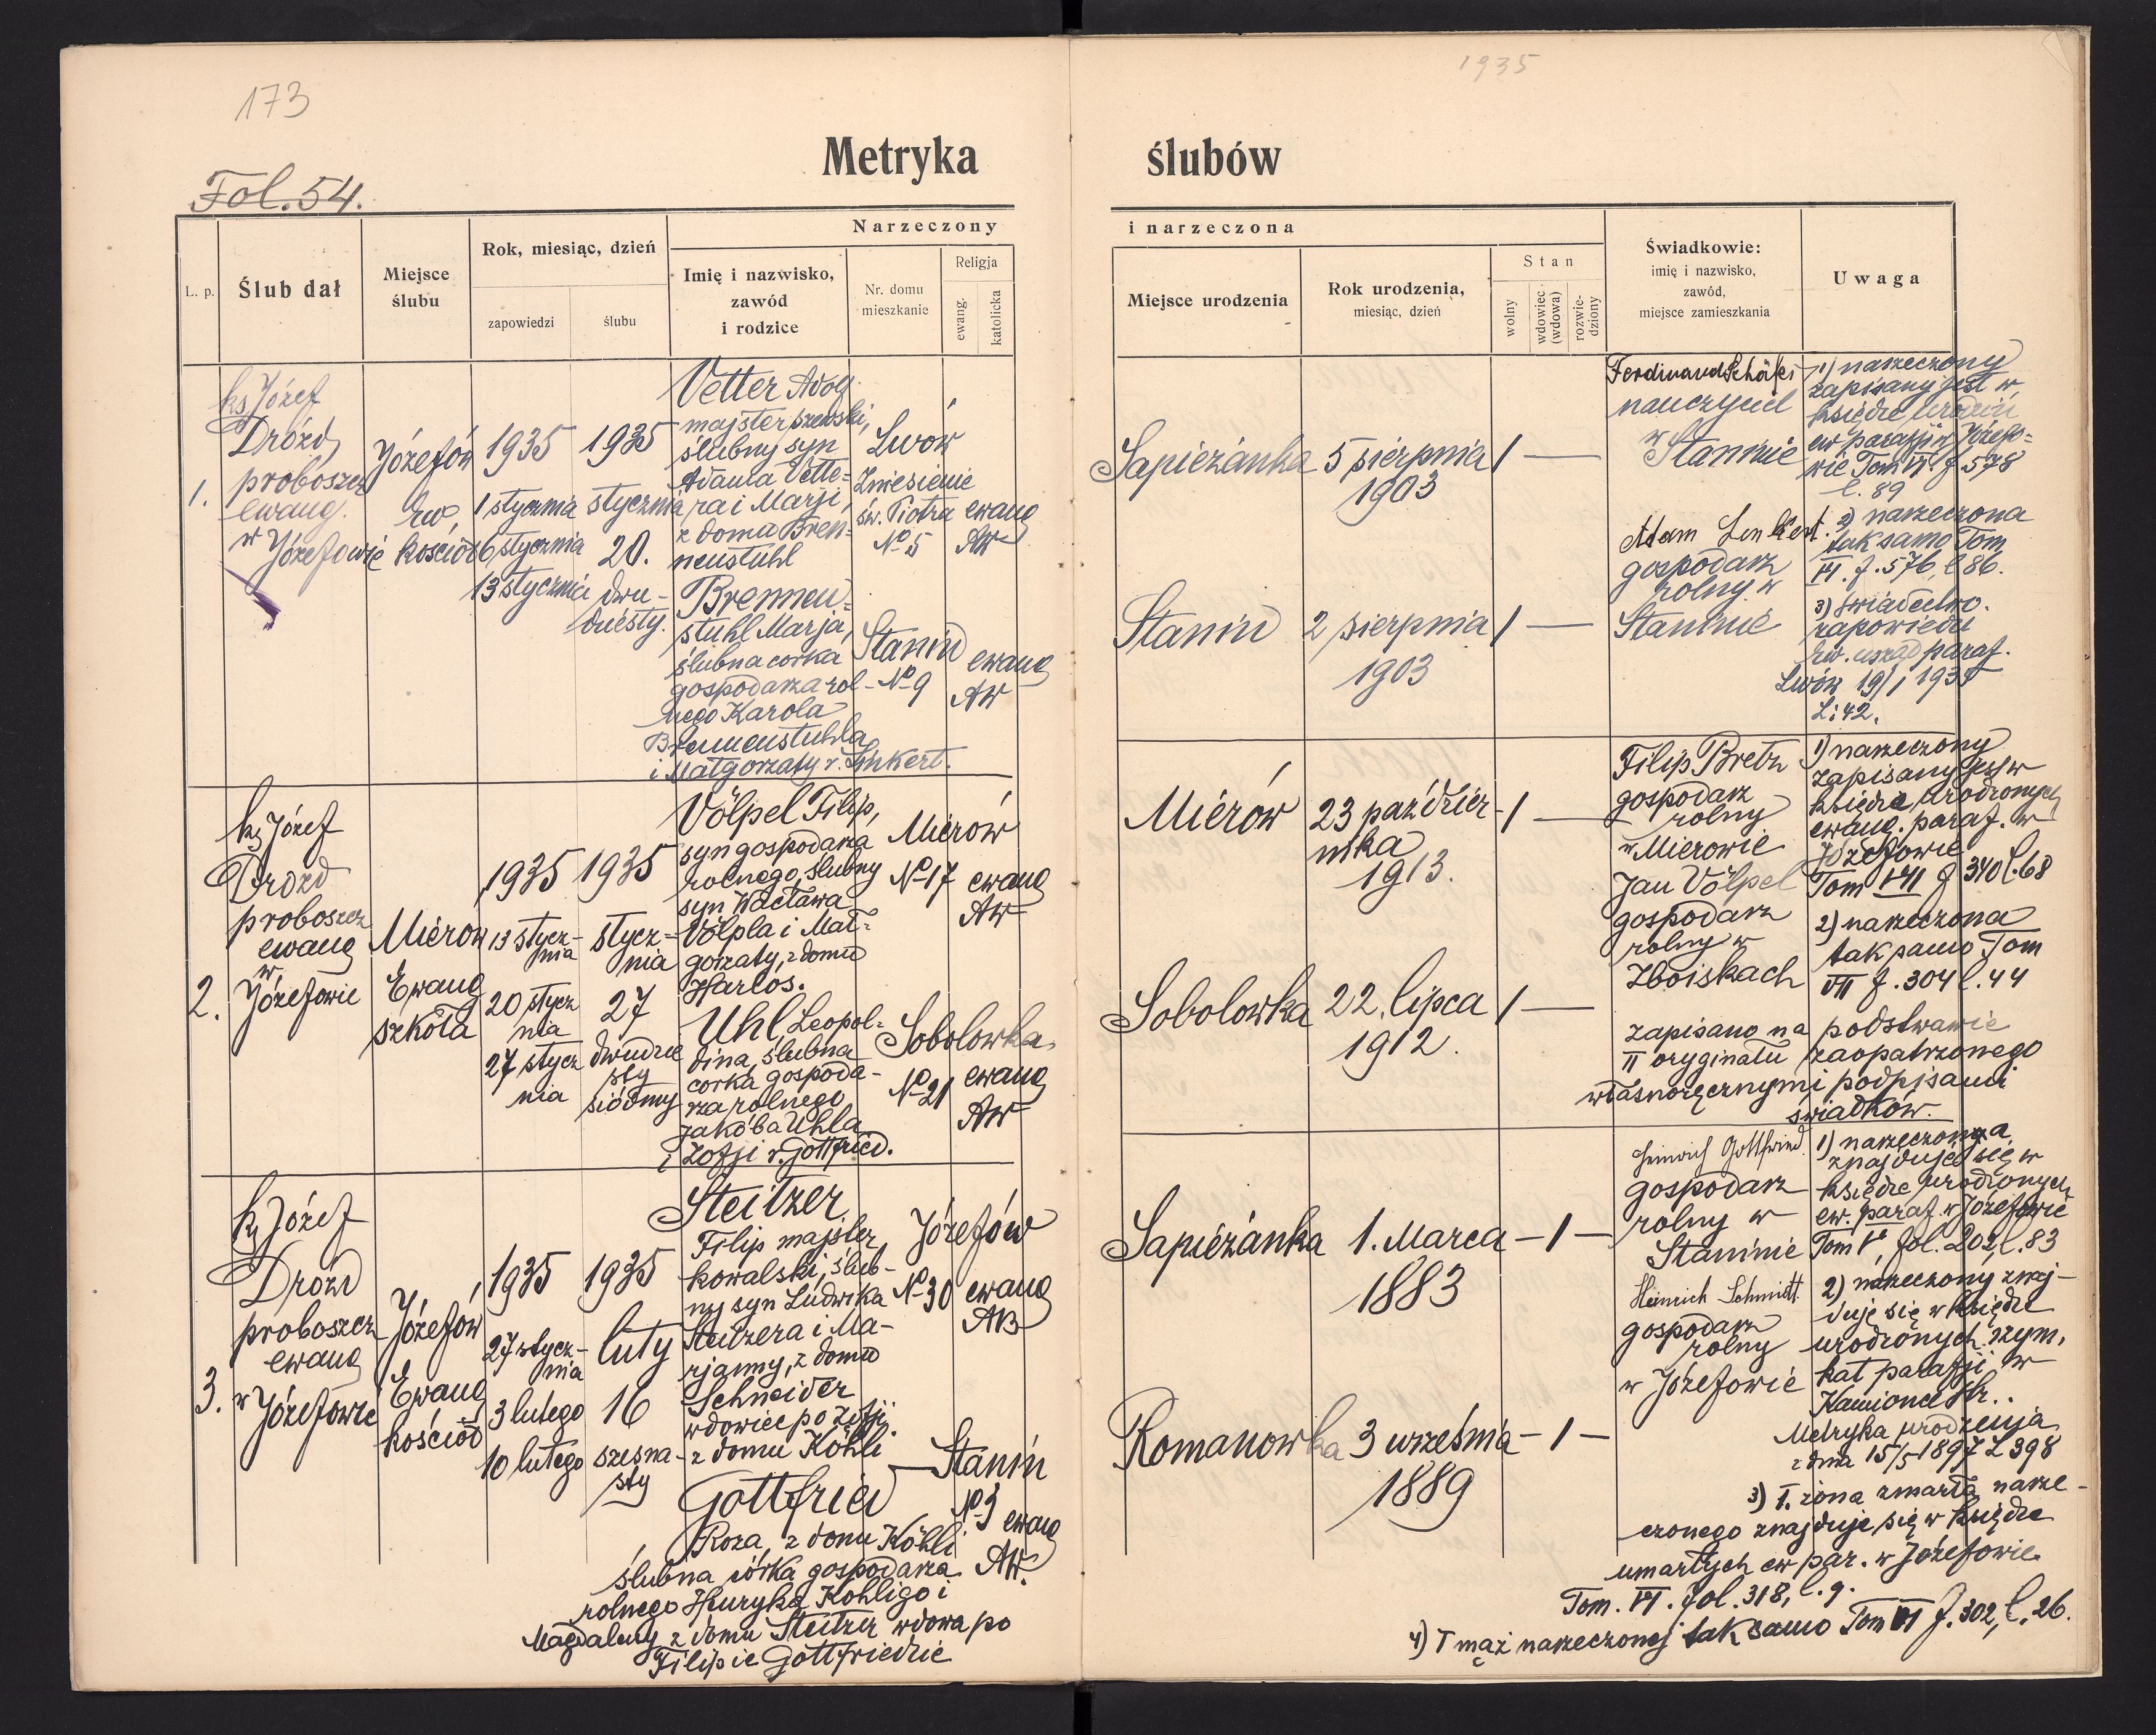 173
1935
Metryka ślubów
Fol. 54.
L. p.
Ślub dał
Miejsce
ślubu
Rok, miesiąc, dzień
zapowiedzi
ślubu
Narzeczony
Imię i nazwisko,
zawód
i rodzice
Nr. domu
mieszkanie
Religja
ewang.
katolicka
i narzeczona
Miejsce urodzenia
Rok urodzenia,
miesiąc, dzień
Stan
wolny
wdowiec
(wdowa)
rozwie-
dziony
Świadkowie:
imię i nazwisko,
zawód,
miejsce zamieszkania
Uwaga
1.
ks Józef
Drózd
proboszcz
ewang.
w Józefowie
Józefów
ew.
kościół
1935
1 stycznia
6 stycznia
13 stycznia
1935
stycznia
20.
dwu-
dziesty.
Vetter Adolf
majster szewski,
ślubny syn
Adama Vette-
ra i Marji,
z domu Bren-
neustuhl
Lwów
Zniesienie
św. Piotra
No 5
ewang
AW
Brennen-
stuhl Marja,
ślubna corka
gospodarza rol-
nego Karola
Brennenstuhla
i Małgorzaty r. Linkert.
Stanin
No 9
ewang
AW
Sapieżanka
5 sierpnia
1903
1 —
Stanin
2 sierpnia
1903
1 —
Ferdinand Schäfer
nauczyciel
w
Staninie
Adam Linkert.
gospodarz
rolny w
Staninie
1) narzeczony
zapisany jest w
księdze urodzin
ew. parafji w Józefo-
wie Tom VI. f. 578
l. 89
2) narzeczona
tak samo Tom
VI. f. 576, l 86.
3) świadectwo.
zapowiedzi
ew. urząd paraf.
Lwów 19/1 1935
L: 42.
2.
ks Józef
Drozd
proboszcz
ewang
w
Józefowie
Mierow
Ewang
szkoła
1935
13 stycz-
nia
20 stycz
nia
27 stycz
nia
1935
stycz-
nia
27
dwudzie
sty
siódmy
Völpel Filip,
syn gospodarza
rolnego, ślubny
syn Wacława
Völpla i Mał-
gorzaty, z domu
Harlos.
Mierów
No 17
ewang
AW
Uhl, Leopol-
dina, ślubna
corka gospoda-
rza rolnego
Jakóba Uhla
i Zofji r. Gottfried.
Sobolowka
No 21
ewang
AW
Mierów
23 paździer-
nika
1913.
1 —
Sobolowka
22. lipca
1912.
1 —
Filip Bretz
gospodarz
rolny
w Mierowie
Jan Völpel
gospodarz
rolny w
Zboiskach
1) narzeczony
zapisany jest w
księdze urodzonych
ewang. paraf. w
Józefowie
Tom VII f 340 l. 68
2) narzeczona
tak samo Tom
VII f. 304 l. 44
zapisano na podstwawie
II oryginału zaopatrzonego
własnoręcznymi podpisami
świadków.
3.
ks Józef
Drózd
proboszcz
ewang
w Józefowie
Józefow
Ewang
kościoł
1935
27 stycz-
nia
3 lutego
10 lutego
1935
luty
16
szesna-
sty
Steitzer
Filip majster
kowalski, ślub-
ny syn Ludwika
Steitzera i Ma-
rjanny, z domu
Schneider
wdowiec po Zofji
z domu Köhli
Józefów
No 30
ewang
AB
Gottfried
Roza, z domu Köhli
ślubna córka gospodarza
rolnego Henryka Kohligo i
Magdaleny z domu Steitzer wdowa po
Filipie Gottfriedzie
Stanin
No 3
ewang
AW.
Sapieżanka
1. Marca
1883
— 1 —
Romanowka
3 września
1889
— 1 —
Heinrich Gottfried
gospodarz
rolny w
Staninie
Heinrich Schmidt
gospodarz
rolny
w Józefowie
1) narzeczona
znajduje się w
księdze urodzonych
ew. paraf. w Józefowie
Tom V, fol. 202, l. 83
2) narzeczony znaj-
duje się w księdze
urodzonych rzym.
kat parafji w
Kamionce Str..
Metryka urodzenia
z dnia 15/5 1897 L 398
3) I. żona zmarła narze-
czonego znajduje się w księdze
umarłych ew par. w Józefowie
Tom. VI. fol. 318, l. 9.
4) I mąż narzeczonej tak samo Tom VI f. 302, l. 26.